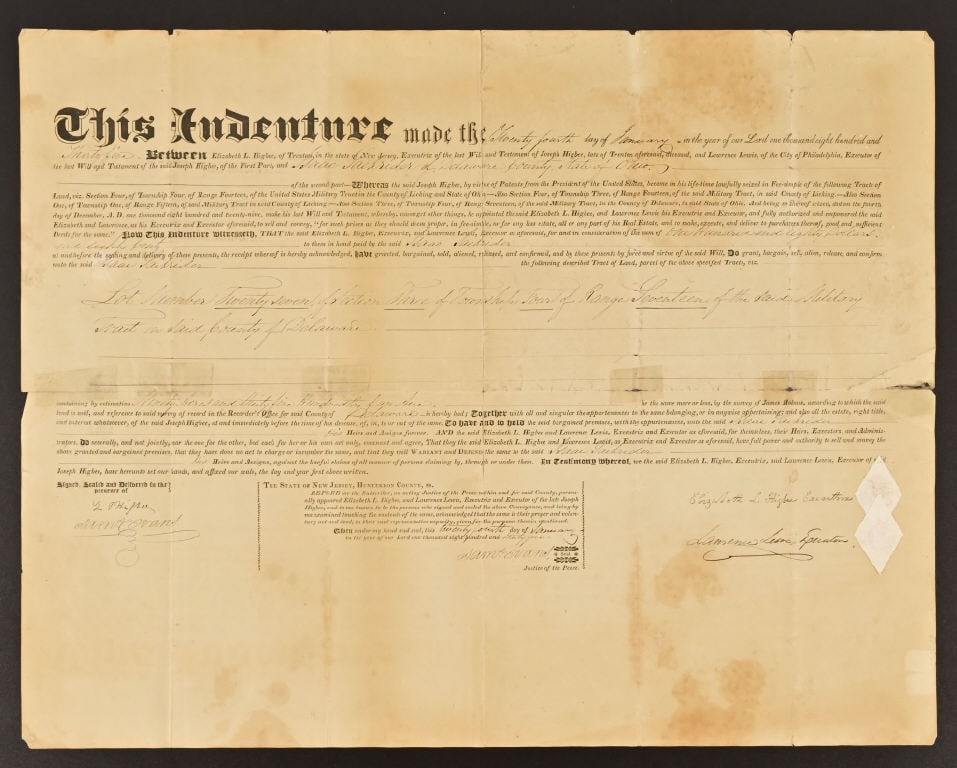 This Indenture made the Twenty fourth day of January in the year of our Lord one thousand eight hundred and
Thirty five Between Elizabeth L. Higbee, of Trenton, in the state of New Jersey, Executrix of the last Will and Testament of Joseph Higbee, late of Trenton aforesaid, deceased, and Lawrence Lewis, of the City of Philadelphia, Executor of
the last Will and Testament of the said Joseph Higbee, of the First Part, and of Delaware County State of Ohio
of the second part—Whereas the said Joseph Higbee, by virtue of Patents from the President of the United States, became in his life-time lawfully seized in Fee-simple of the following Tracts of
Land, viz. Section Four, of Township Four, of Range Fourteen, of the United States Military Tract in the County of Licking and State of Ohio—Also Section Four, of Township Three, of Range Fourteen, of the said Military Tract, in said County of Licking.—Also Section
One, of Township One, of Range Fifteen, of said Military Tract in said County of Licking—Also Section Three, of Township Four, of Range Seventeen, of the said Military Tract, in the County of Delaware, in said State of Ohio. And being so thereof seized, did on the tenth
day of December, A. D. one thousand eight hundred and twenty-nine, make his last Will and Testament, whereby, amongst other things, he appointed the said Elizabeth L. Higbee, and Lawrence Lewis his Executrix and Executor, and fully authorized and empowered the said
Elizabeth and Lawrence, as his Executrix and Executor aforesaid, to sell and convey, "for such prices as they should deem proper, in fee-simple, or for any less estate, all or any part of his Real Estate, and to make, execute, and deliver to purchasers thereof, good and sufficient
Deeds for the same." Now This Indenture Witnesseth, THAT the said Elizabeth L. Higbee, Executrix, and Lawrence Lewis, Executor as aforesaid, for and in consideration of the sum of One hundred and eighty dollars
and eighty cents to them in hand paid by the said
at and before the sealing and delivery of these presents, the receipt whereof is hereby acknowledged, have granted, bargained, sold, aliened, released, and confirmed, and by these presents by force and virtue of the said Will, Do grant, bargain, sell, alien, release, and confirm
unto the said the following described Tract of Land, parcel of the above specified Tracts, viz.
Lot Number Twenty seven of Section Three of Township Four of Range Seventeen of the said Military
Tract in said County of Delaware
containing by estimation Ninety acres and be the same more or less, by the survey of James Holmes, according to which the said
land is sold, and reference to said survey of record in the Recorder's Office for said County of Delaware is hereby had; Together with all and singular the appurtenances to the same belonging, or in anywise appertaining; and also all the estate, right title,
and interest whatsoever, of the said Joseph Higbee, at and immediately before the time of his decease, of, in, to or out of the same. To have and to hold the said bargained premises, with the appurtenances, unto the said
his Heirs and Assigns forever. AND the said Elizabeth L. Higbee and Lawrence Lewis, Executrix and Executor as aforesaid, for themselves, their Heirs, Executors, and Adminis-
trators, Do severally, and not jointly, nor the one for the other, but each for her or his own act only, covenant and agree, That they the said Elizabeth L. Higbee and Lawrence Lewis, as Executrix and Executor as aforesaid, have full power and authority to sell and convey the
above granted and bargained premises, that they have done no act to charge or incumber the same, and that they will WARRANT AND DEFEND the same to the said
his Heirs and Assigns, against the lawful claims of all manner of persons claiming by, through or under them. In Testimony whereof, we the said Elizabeth L. Higbee, Executrix, and Lawrence Lewis, Executor of said
Joseph Higbee, have hereunto set our hands, and affixed our seals, the day and year first above written.
Signed, Sealed and Delivered in the
presence of
Saml R Evans
THE STATE OF NEW JERSEY, HUNTERDON COUNTY, ss.
BEFORE me the Subscriber, an acting Justice of the Peace within and for said County, person-
ally appeared Elizabeth L. Higbee, and Lawrence Lewis, Executrix and Executor of the late Joseph
Higbee, and to me known to be the persons who signed and sealed the above Conveyance, and being by
me examined touching the contents of the same, acknowledged that the same is their proper and volun-
tary act and deed, in their said representative capacity, given for the purpose therein mentioned.
Given under my hand and seal, this twenty fourth day of January
in the year of our Lord one thousand eight hundred and thirty five
Saml R Evans
Seal
Justice of the Peace.
Elizabeth L Higbee Executrix
Lawrence Lewis Executor